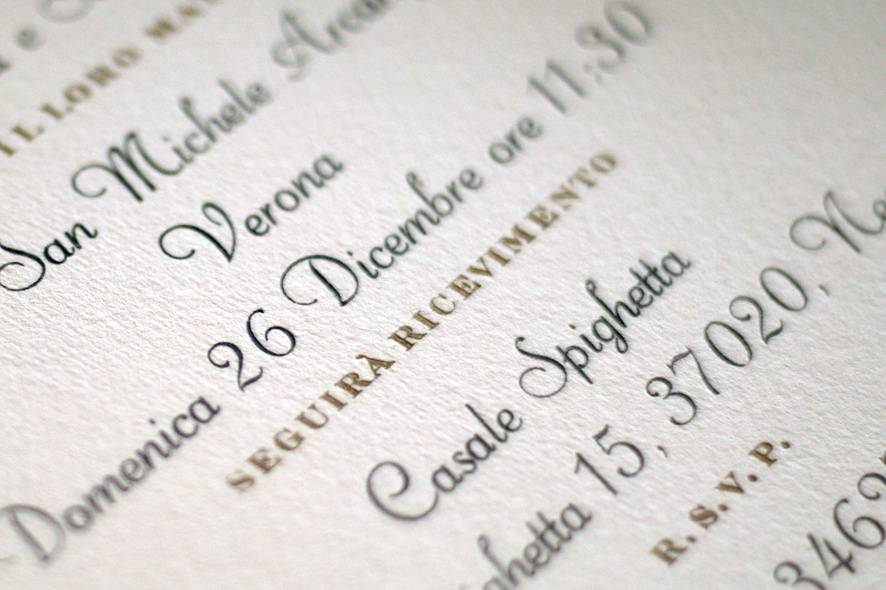 IL LORO
San Michele
Verona
Domenica 26 Dicembre ore 11:30
SEGUIRÀ RICEVIMENTO
Casale Spighetta
15, 37020,
R.S.V.P.